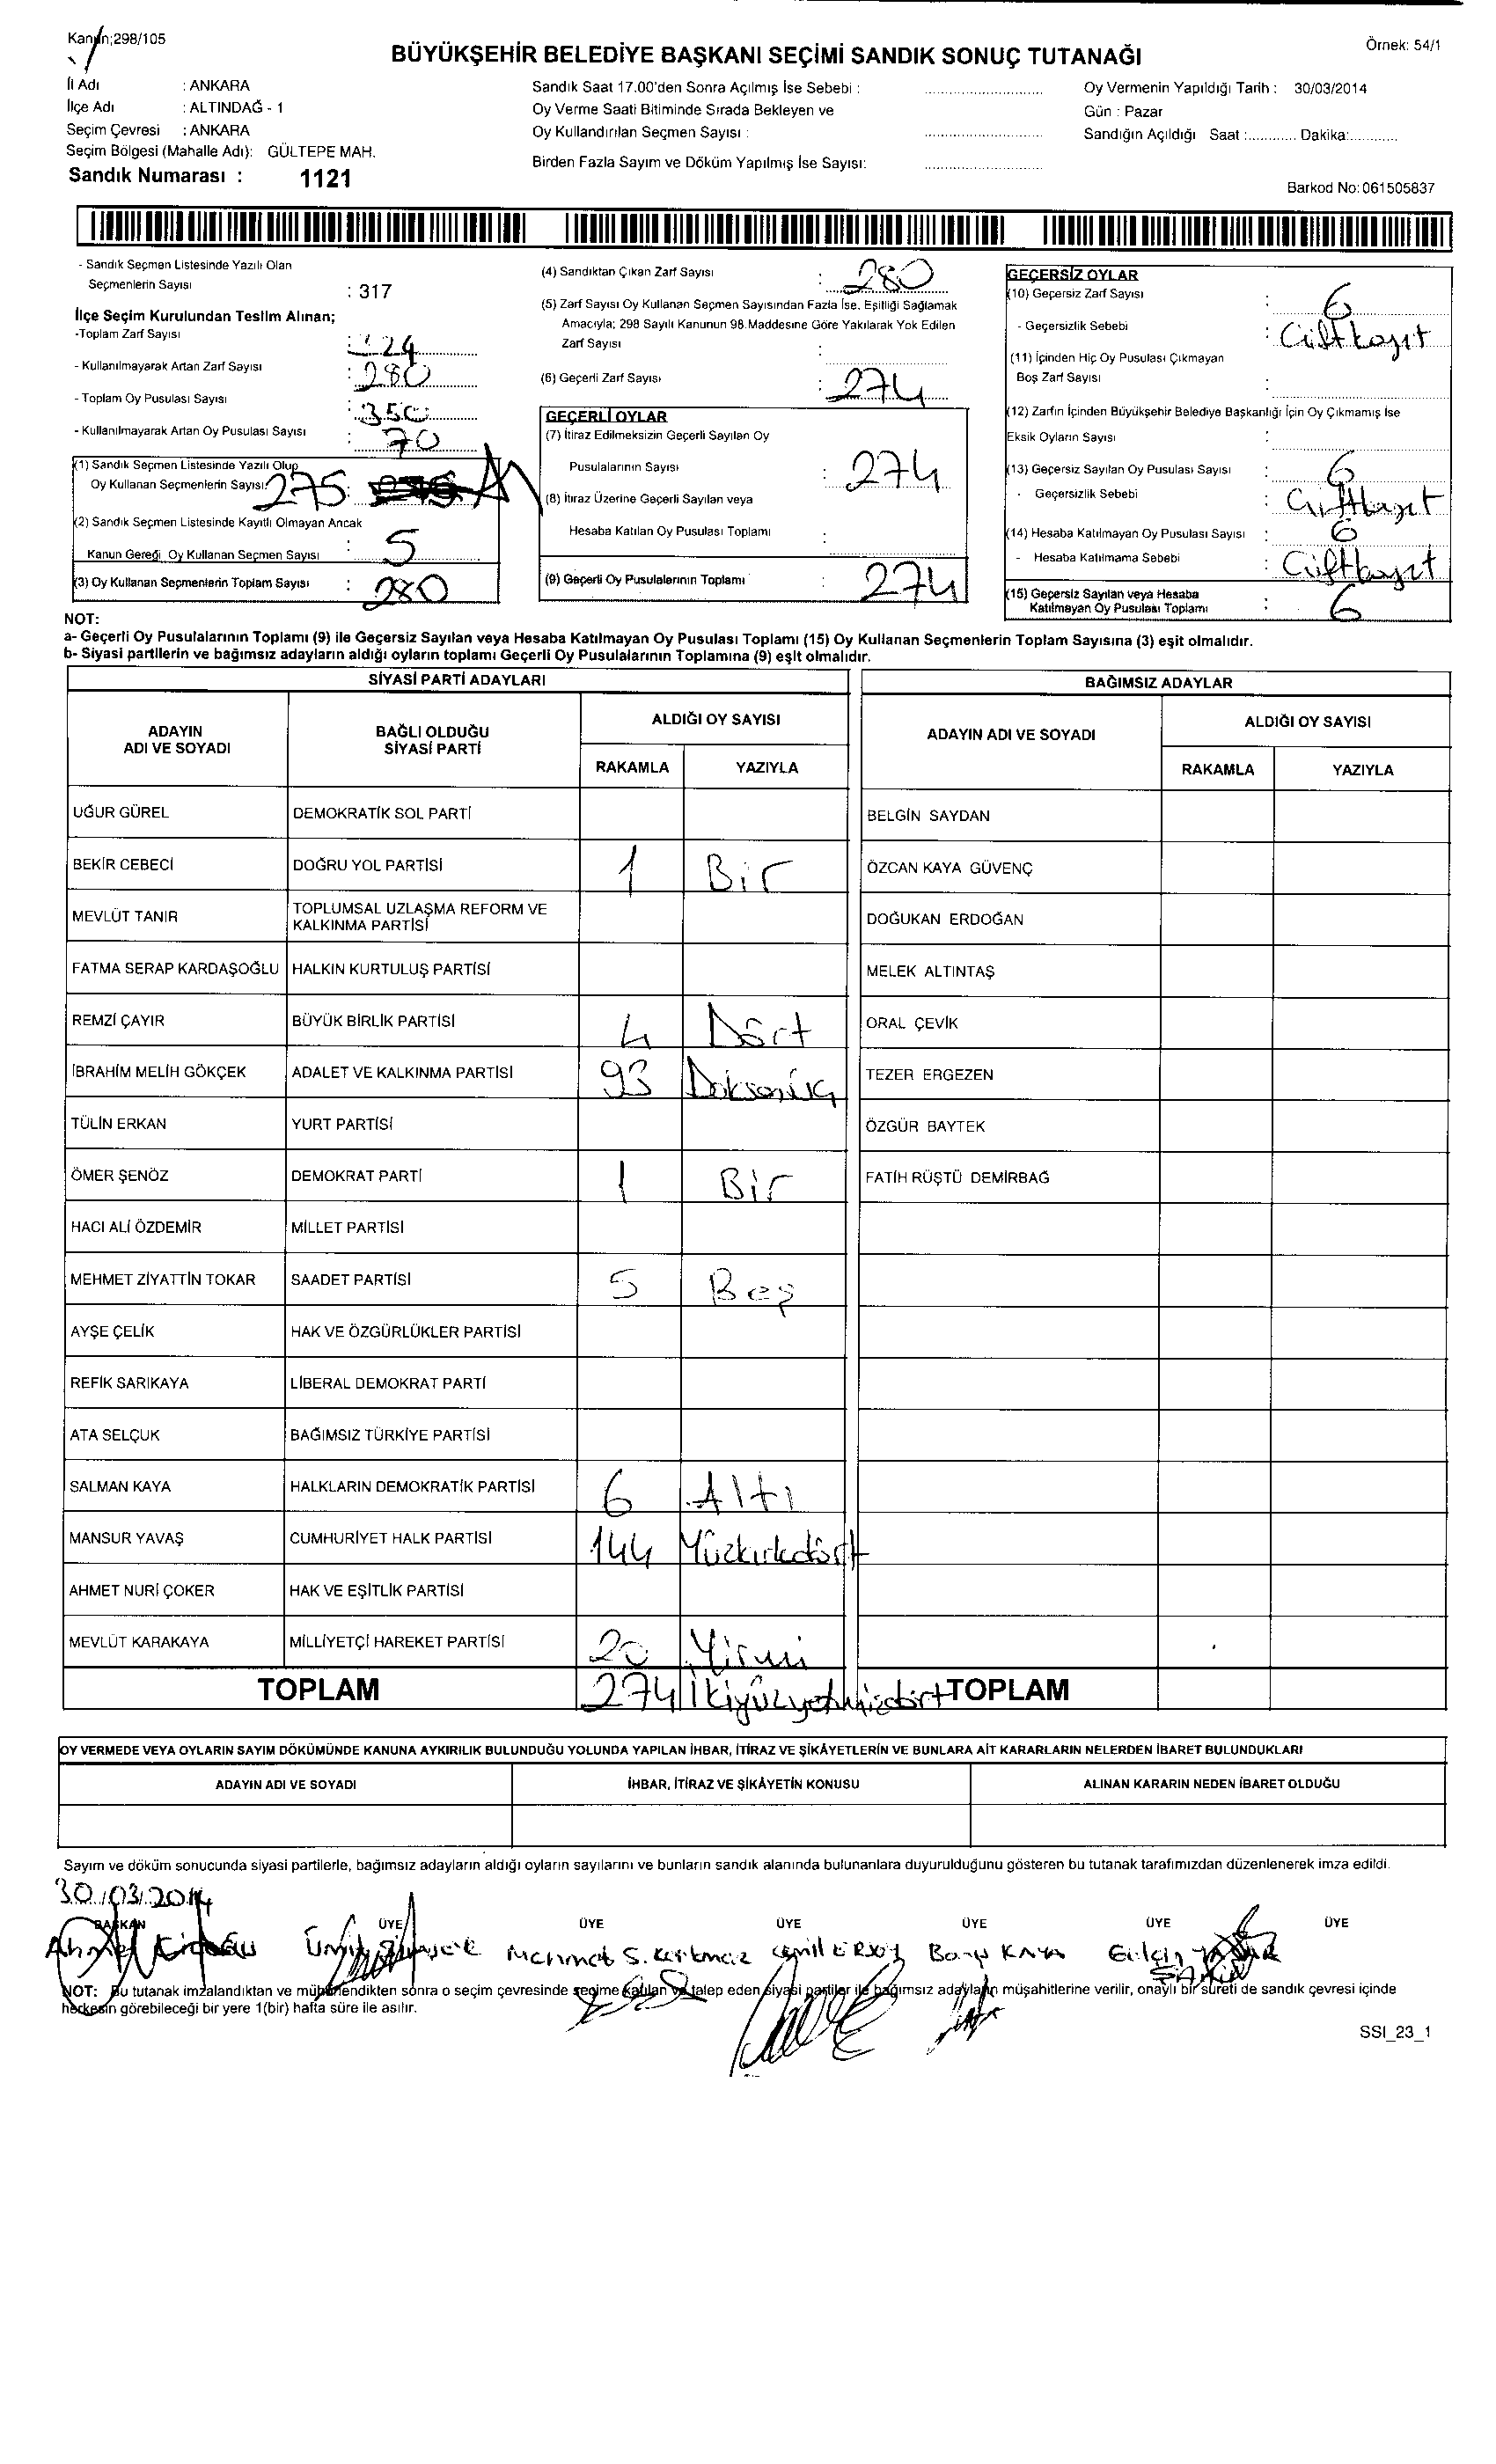 Kanun;298/105
BÜYÜKŞEHİR BELEDİYE BAŞKANI SEÇİMİ SANDIK SONUÇ TUTANAĞI
Örnek: 54/1
İl Adı : ANKARA
İlçe Adı : ALTINDAĞ - 1
Seçim Çevresi : ANKARA
Seçim Bölgesi (Mahalle Adı): GÜLTEPE MAH.
Sandık Numarası : 1121
Sandık Saat 17.00'den Sonra Açılmış İse Sebebi :
Oy Verme Saati Bitiminde Sırada Bekleyen ve
Oy Kullandırılan Seçmen Sayısı :
Birden Fazla Sayım ve Döküm Yapılmış İse Sayısı:
Oy Vermenin Yapıldığı Tarih : 30/03/2014
Gün : Pazar
Sandığın Açıldığı Saat :............ Dakika:............
Barkod No:061505837
- Sandık Seçmen Listesinde Yazılı Olan
Seçmenlerin Sayısı : 317
İlçe Seçim Kurulundan Teslim Alınan;
-Toplam Zarf Sayısı :
- Kullanılmayarak Artan Zarf Sayısı : 280
- Toplam Oy Pusulası Sayısı : 350
- Kullanılmayarak Artan Oy Pusulası Sayısı : 70
(1) Sandık Seçmen Listesinde Yazılı Olup
Oy Kullanan Seçmenlerin Sayısı: 275
(2) Sandık Seçmen Listesinde Kayıtlı Olmayan Ancak
Kanun Gereği Oy Kullanan Seçmen Sayısı : 5
(3) Oy Kullanan Seçmenlerin Toplam Sayısı : 280
(4) Sandıktan Çıkan Zarf Sayısı : 280
(5) Zarf Sayısı Oy Kullanan Seçmen Sayısından Fazla İse, Eşitliği Sağlamak
Amacıyla; 298 Sayılı Kanunun 98.Maddesine Göre Yakılarak Yok Edilen
Zarf Sayısı :
(6) Geçerli Zarf Sayısı : 274
GEÇERLİ OYLAR
(7) İtiraz Edilmeksizin Geçerli Sayılan Oy
Pusulalarının Sayısı : 274
(8) İtiraz Üzerine Geçerli Sayılan veya
Hesaba Katılan Oy Pusulası Toplamı :
(9) Geçerli Oy Pusulalarının Toplamı : 274
GEÇERSİZ OYLAR
(10) Geçersiz Zarf Sayısı : 6
- Geçersizlik Sebebi : Çiftkayıt
(11) İçinden Hiç Oy Pusulası Çıkmayan
Boş Zarf Sayısı :
(12) Zarfın İçinden Büyükşehir Belediye Başkanlığı İçin Oy Çıkmamış İse
Eksik Oyların Sayısı :
(13) Geçersiz Sayılan Oy Pusulası Sayısı : 6
- Geçersizlik Sebebi : Çiftkayıt
(14) Hesaba Katılmayan Oy Pusulası Sayısı : 6
- Hesaba Katılmama Sebebi : Çiftkayıt
(15) Geçersiz Sayılan veya Hesaba
Katılmayan Oy Pusulası Toplamı : 6
NOT:
a- Geçerli Oy Pusulalarının Toplamı (9) ile Geçersiz Sayılan veya Hesaba Katılmayan Oy Pusulası Toplamı (15) Oy Kullanan Seçmenlerin Toplam Sayısına (3) eşit olmalıdır.
b- Siyasi partilerin ve bağımsız adayların aldığı oyların toplamı Geçerli Oy Pusulalarının Toplamına (9) eşit olmalıdır.
SİYASİ PARTİ ADAYLARI
ADAYIN ADI VE SOYADI
BAĞLI OLDUĞU SİYASİ PARTİ
ALDIĞI OY SAYISI
RAKAMLA YAZIYLA
UĞUR GÜREL DEMOKRATİK SOL PARTİ
BEKİR CEBECİ DOĞRU YOL PARTİSİ 1 Bir
MEVLÜT TANIR TOPLUMSAL UZLAŞMA REFORM VE
KALKINMA PARTİSİ
FATMA SERAP KARDAŞOĞLU HALKIN KURTULUŞ PARTİSİ
REMZİ ÇAYIR BÜYÜK BİRLİK PARTİSİ 4 Dört
İBRAHİM MELİH GÖKÇEK ADALET VE KALKINMA PARTİSİ 93 Doksanüç
TÜLİN ERKAN YURT PARTİSİ
ÖMER ŞENÖZ DEMOKRAT PARTİ 1 Bir
HACI ALİ ÖZDEMİR MİLLET PARTİSİ
MEHMET ZİYATTİN TOKAR SAADET PARTİSİ 5 Beş
AYŞE ÇELİK HAK VE ÖZGÜRLÜKLER PARTİSİ
REFİK SARIKAYA LİBERAL DEMOKRAT PARTİ
ATA SELÇUK BAĞIMSIZ TÜRKİYE PARTİSİ
SALMAN KAYA HALKLARIN DEMOKRATİK PARTİSİ 6 Altı
MANSUR YAVAŞ CUMHURİYET HALK PARTİSİ 144 Yüzkırkdört
AHMET NURİ ÇOKER HAK VE EŞİTLİK PARTİSİ
MEVLÜT KARAKAYA MİLLİYETÇİ HAREKET PARTİSİ 20 Yirmi
TOPLAM 274 İkiyüzyetmişdört
BAĞIMSIZ ADAYLAR
ADAYIN ADI VE SOYADI
ALDIĞI OY SAYISI
RAKAMLA YAZIYLA
BELGİN SAYDAN
ÖZCAN KAYA GÜVENÇ
DOĞUKAN ERDOĞAN
MELEK ALTINTAŞ
ORAL ÇEVİK
TEZER ERGEZEN
ÖZGÜR BAYTEK
FATİH RÜŞTÜ DEMİRBAĞ
TOPLAM
OY VERMEDE VEYA OYLARIN SAYIM DÖKÜMÜNDE KANUNA AYKIRILIK BULUNDUĞU YOLUNDA YAPILAN İHBAR, İTİRAZ VE ŞİKÂYETLERİN VE BUNLARA AİT KARARLARIN NELERDEN İBARET BULUNDUKLARI
ADAYIN ADI VE SOYADI İHBAR, İTİRAZ VE ŞİKÂYETİN KONUSU ALINAN KARARIN NEDEN İBARET OLDUĞU
Sayım ve döküm sonucunda siyasi partilerle, bağımsız adayların aldığı oyların sayılarını ve bunların sandık alanında bulunanlara duyurulduğunu gösteren bu tutanak tarafımızdan düzenlenerek imza edildi.
30/03/2014
BAŞKAN ÜYE ÜYE ÜYE ÜYE ÜYE ÜYE
Ahmet Mehmet S. Korkmaz Cemil ERSOY Barış KAYA
NOT: Bu tutanak imzalandıktan ve mühürlendikten sonra o seçim çevresinde seçime katılan ve talep eden siyasi partiler ile bağımsız adayların müşahitlerine verilir, onaylı bir sureti de sandık çevresi içinde
herkesin görebileceği bir yere 1(bir) hafta süre ile asılır.
SSI_23_1